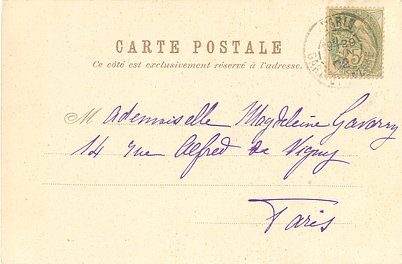 PARIS
CARTE POSTALE
Ce côté est exclusivement réservé à l'adresse.
Mademoiselle Magdeleine Gavarry
14 rue Alfred de Vigny
Paris